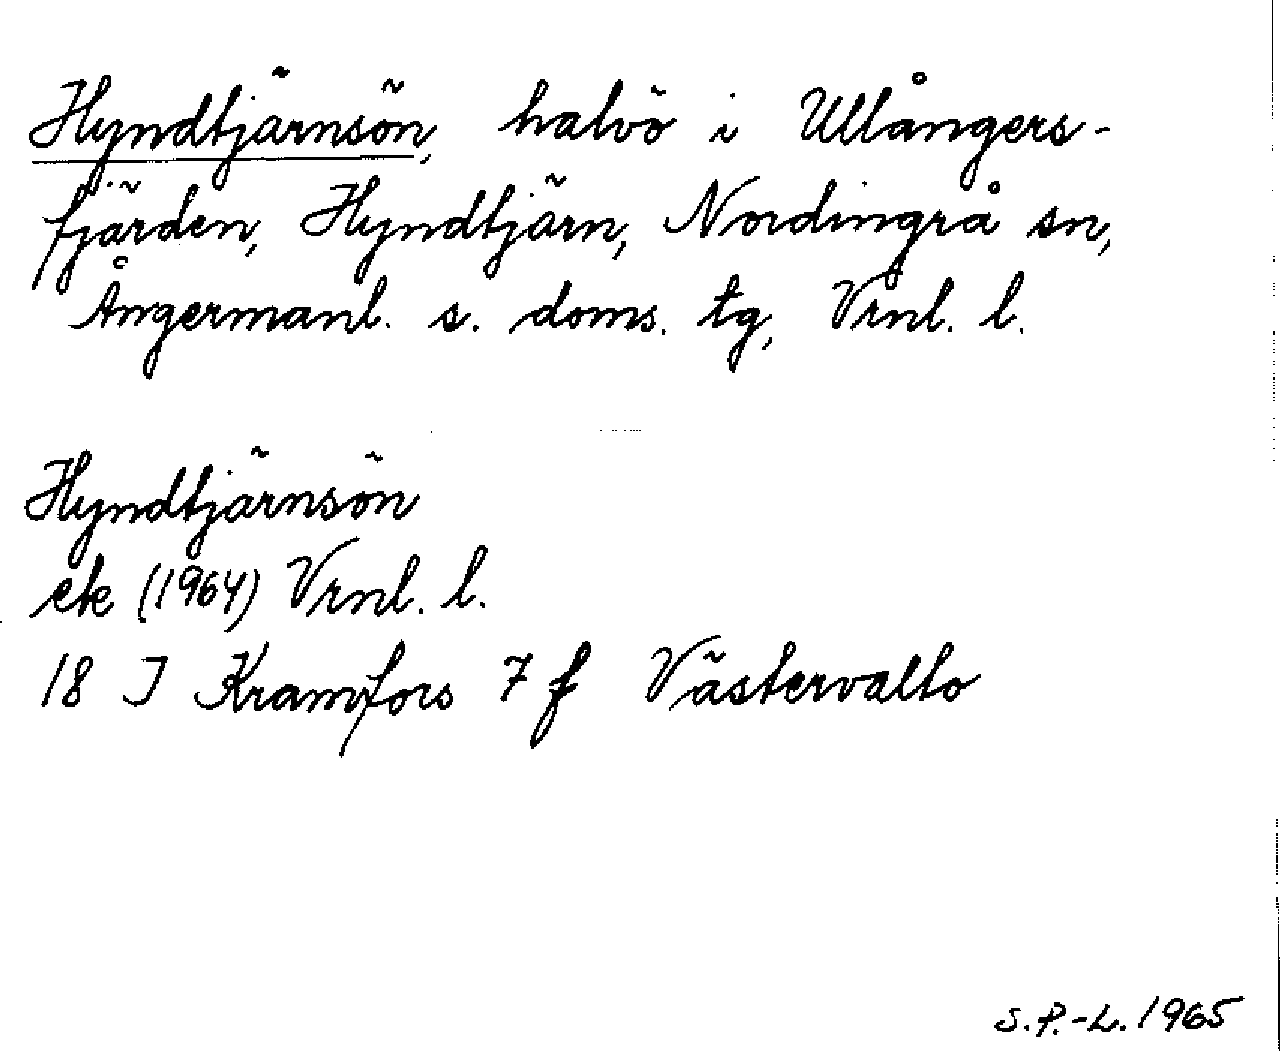 Hyndtjärnsön, halvö i Ullångers-
fjärden, Hyndtjärn, Nordingrå sn,
Ångermanl. s. doms. tg, Vrnl. l.
Hyndtjärnsön
ek (1964) Vrnl. l.
18 J Kramfors 7 f Västervalto
S.P.-L. 1965